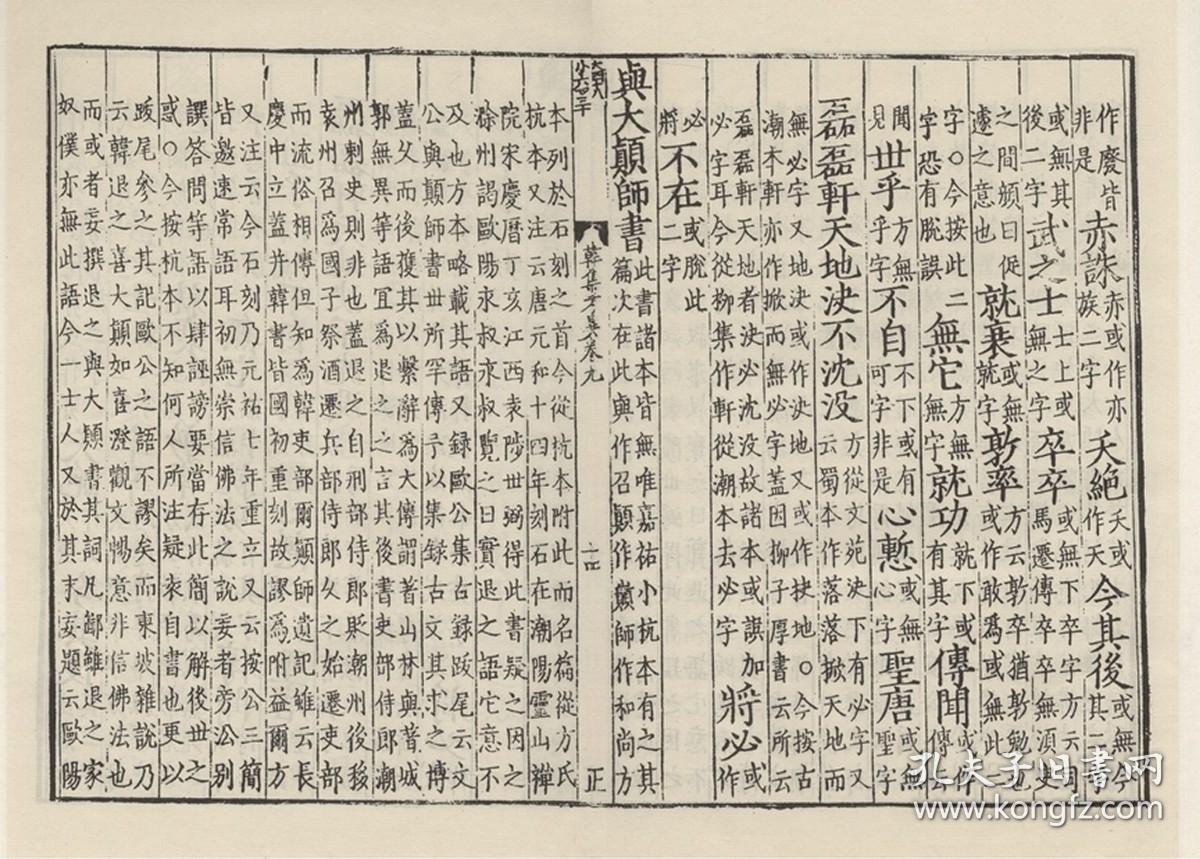 作廢皆非是赤誅赤或作亦族二字夭絶夭或作天今其後或無今其二字
或無其後二字武之士士上或無之字卒卒或無下卒字方云司馬遷傳卒卒無須臾
之間顔曰促遽之意也就乗或無就字勑率方云勑卒猶勑勉也或作敢爲或無此二
字〇今按此字恐有脫誤無它方無二無字就功就下或有其字傳聞或作傳云
聞見世乎方無乎字不自不下或有可字非是心慙或無心字聖唐或無聖字
磊磊軒天地決不沈没方從文苑決下有必字又云蜀本作落落掀天地而
無必字又地決或作決地又或作抉地〇今按古潮本軒亦作掀而無必字蓋因柳子厚書云所云
磊磊軒天地者決必沈没故諸本或誤加必字耳今從柳集作軒從潮本去必字將必或作
必將不在或脫此二字
與大顛師書此書諸本皆無唯嘉祐小杭本有之其篇次在此與作召顛作巓師作和尚方
本列於石刻之首今從杭本附此而名篇從方氏
杭本又注云唐元和十四年刻石在潮陽靈山禪
院宋慶曆丁亥江西袁陟世弼得此書疑之因之
滁州謁歐陽永叔永叔覽之曰實退之語它意不
及也方本略載其語又録歐公集古録跋尾云文
公與顛師書世所罕傳予以集録古文其求之博
蓋乆而後獲其以繫辭爲大傳謂著山林與著城
郭無異等語冝爲退之之言其後書吏部侍郎潮
州刺史則非也蓋退之自刑部侍郎貶潮州後移
袁州召爲國子祭酒遷兵部侍郎乆之始遷吏部
而流俗相傳但知爲韓吏部爾顛師遺記雖云長
慶中立蓋并韓書皆國初重刻故謬爲附益爾方
又注云今石刻乃元祐七年重立又云按公三簡
皆邀速常語耳初無崇信佛法之說妄者旁公别
譔答問等語以肆誣謗要當存此簡以解後世之
惑〇今按杭本不知何人所注疑袁自書也更以
跋尾參之其記歐公之語不謬矣而東坡雜說乃
云韓退之喜大顛如喜澄觀文暢意非信佛法也
而或者妄撰退之與大顛書其詞凡鄙雖退之家
奴僕亦無此語今一士人又於其末妄題云歐陽
韓集考異卷九
正
孔夫子旧書网
www.kongfz.com